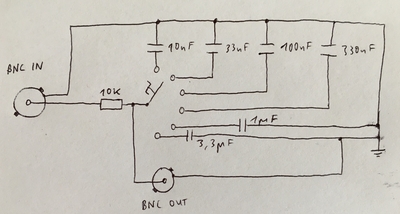 10nF 33nF 100nF 330nF
BNC IN
10K
1µF
3,3µF
BNC OUT